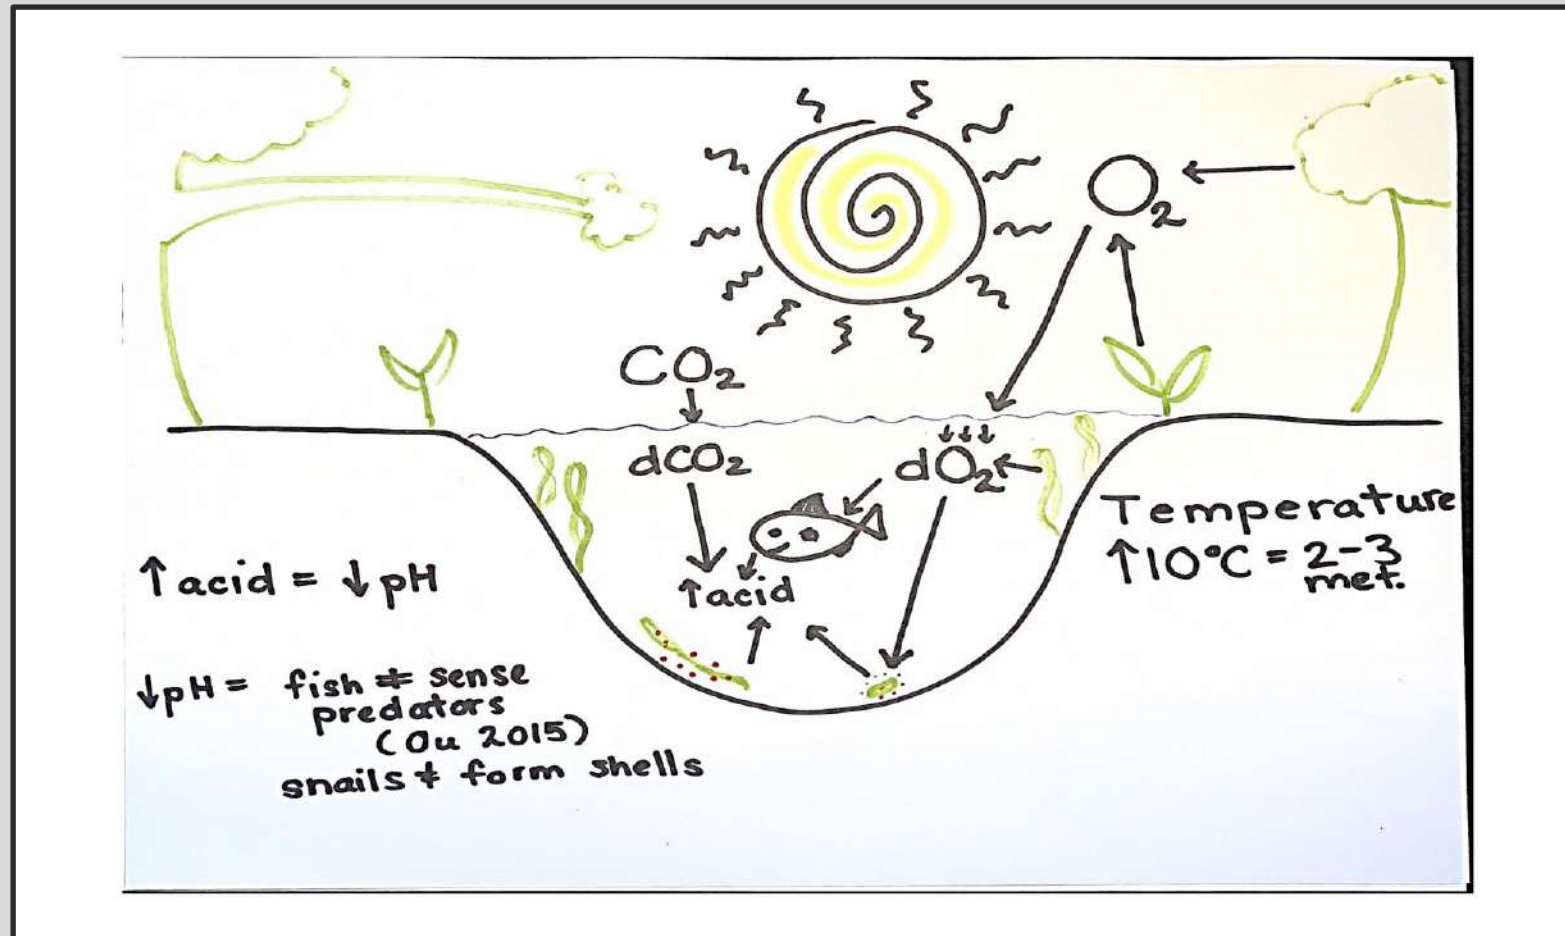 O2
CO2
dCO2
dO2
↑acid
Temperature
↑10°C = 2-3
met.
↑acid = ↓pH
↓pH = fish ≠ sense
predators
(Ou 2015)
snails ≠ form shells